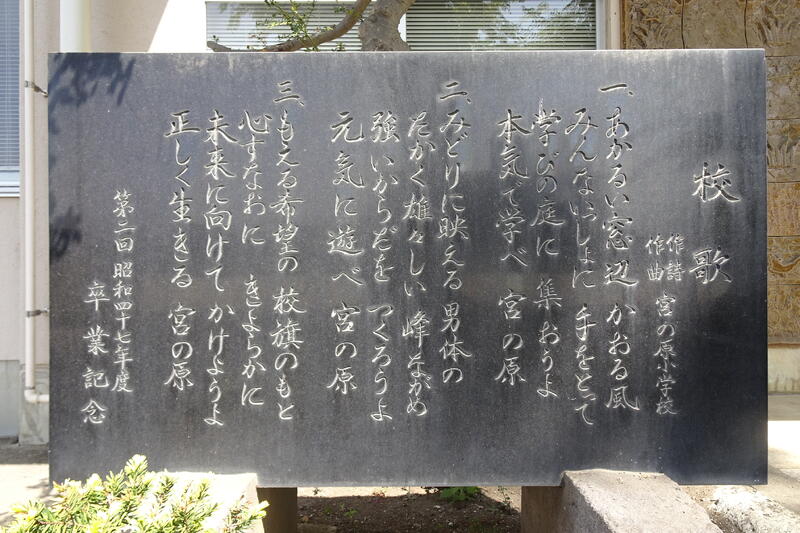 校歌
作詩
作曲 宮の原小学校
一、あかるい窓辺 かおる風
みんないっしょに 手をとって
学びの庭に 集おうよ
本気で学べ 宮の原
二、みどりに映える 男体の
たかく雄々しい 峰ながめ
強いからだを つくろうよ
元気に遊べ 宮の原
三、もえる希望の 校旗のもと
心すなおに きよらかに
未来に向けて かけようよ
正しく生きる 宮の原
第二回 昭和四十七年度
卒業記念